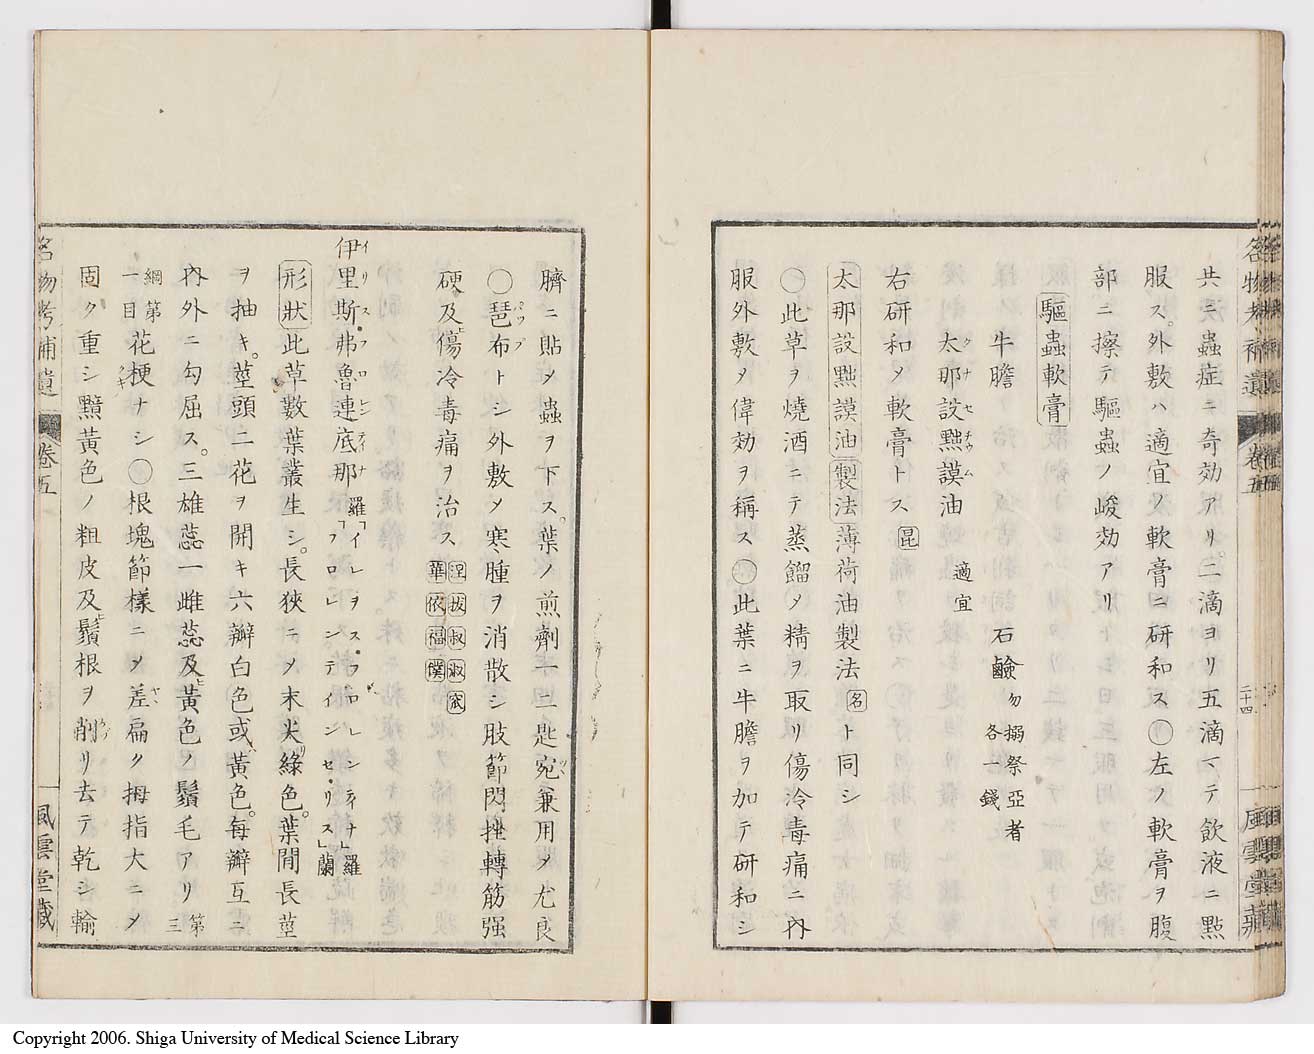 共ニ蟲症ニ奇効アリ。二滴ヨリ五滴マテ飲液ニ點
服ス。外敷ハ適宜ノ軟膏ニ研和ス〇左ノ軟膏ヲ腹
部ニ擦テ驅蟲ノ峻効アリ
驅蟲軟膏
牛膽 石鹼 勿搦祭亞者 各一錢
太那設㸃謨油 適宜
タナセチウム
右研和メ軟膏トス 昆
太那設㸃謨油 製法 薄荷油製法 名 ト同シ
〇此草ヲ燒酒ニテ蒸餾メ精ヲ取リ傷冷毒痛ニ內
服外敷メ偉効ヲ稱ス〇此葉ニ牛膽ヲ加テ研和シ
名物考補遺 卷五 二十四 風雲堂藏
臍ニ貼メ蟲ヲ下ス。葉ノ煎劑一二匙宛兼用メ尤良
〇琶布トシ外敷メ寒腫ヲ消散シ肢節閃挫轉筋强
パップ
硬及ヒ傷冷毒痛ヲ治ス 涅 拔 叔 淑 華 依 福 僕
伊里斯・弗魯連底那 羅「イレヲス・フロレンティナ」羅「フロレンティインセ・リス」蘭
イリス・フロレンティナ
形狀 此草數葉叢生シ。長狹ニメ末尖リ綠色。葉間長莖
ヲ抽キ。莖頭二花ヲ開キ六瓣白色或ハ黃色。每瓣互ニ
內外ニ勾屈ス。三雄蕊一雌蕊及ヒ黃色ノ鬚毛アリ 第三
綱第一目 花梗ナシ〇根塊節樣ニメ差扁ク拇指大ニメ
固ク重シ黯黃色ノ粗皮及ヒ鬚根ヲ削リ去テ乾シ輸
名物考補遺 卷五 風雲堂藏
Copyright 2006. Shiga University of Medical Science Library